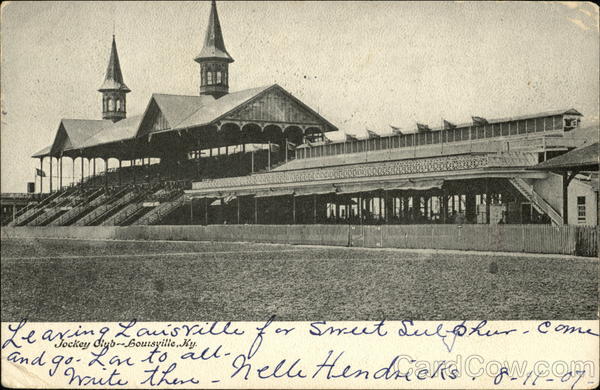 Leaving Louisville for Sweet Sulphur - Come
Jockey Club--Louisville, Ky.
and go - to all -
Write there - Nelle Hendricks. 8-11-07
CardCow.com